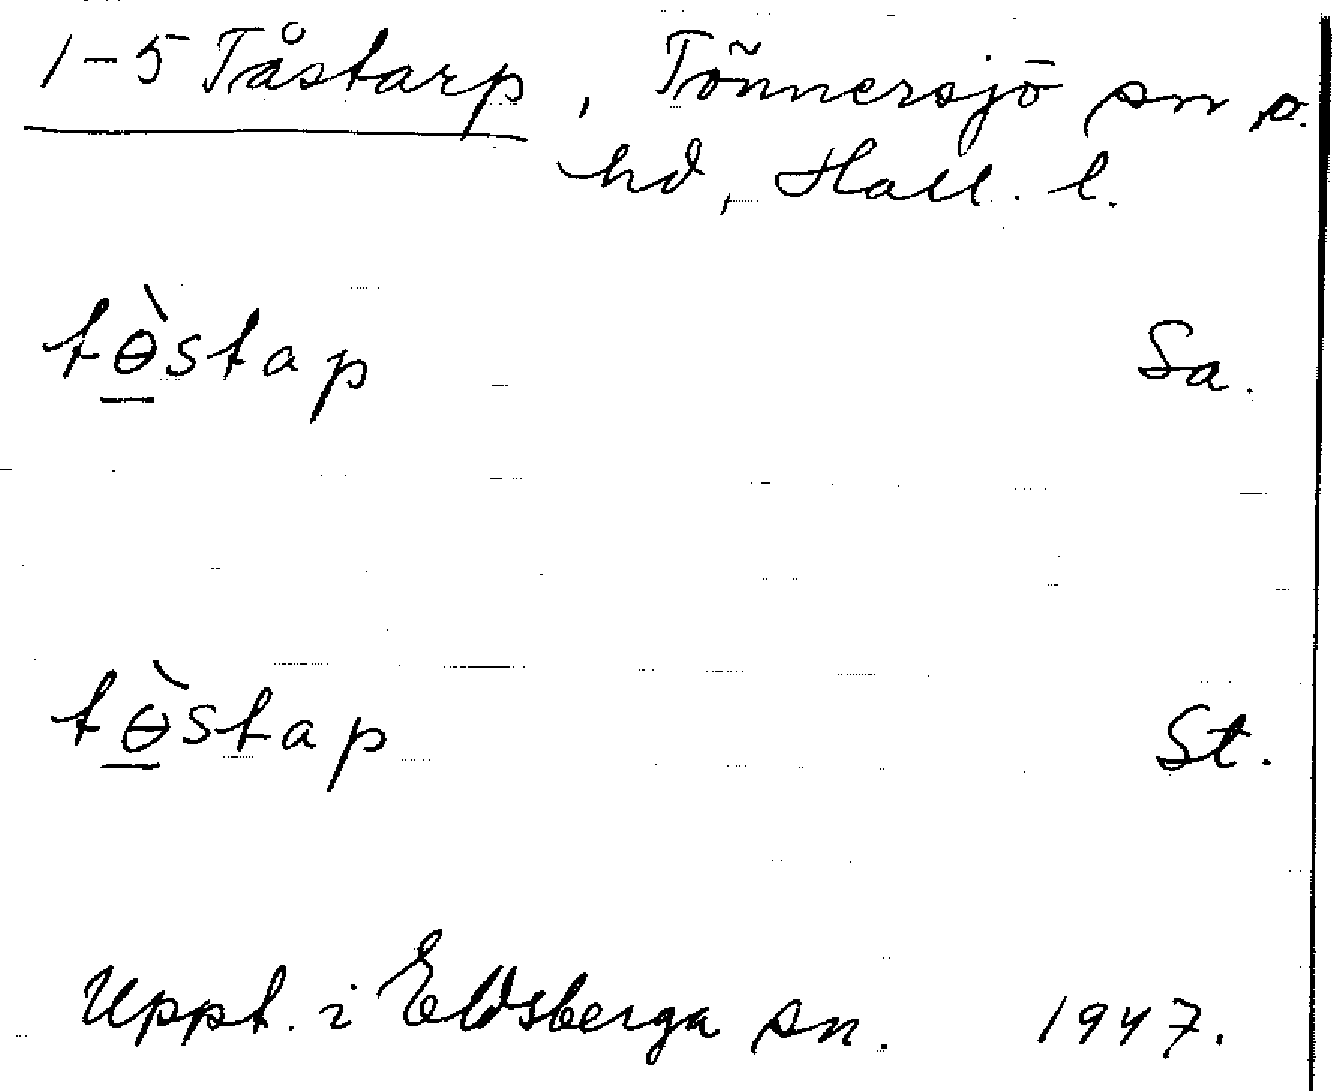 1-5 Tåstarp, Tönnersjö sn o.
hd, Hall. l.
tɵ̀stap Sa.
tɵ̀stap St.
Uppt. i Eldsberga sn. 1947.